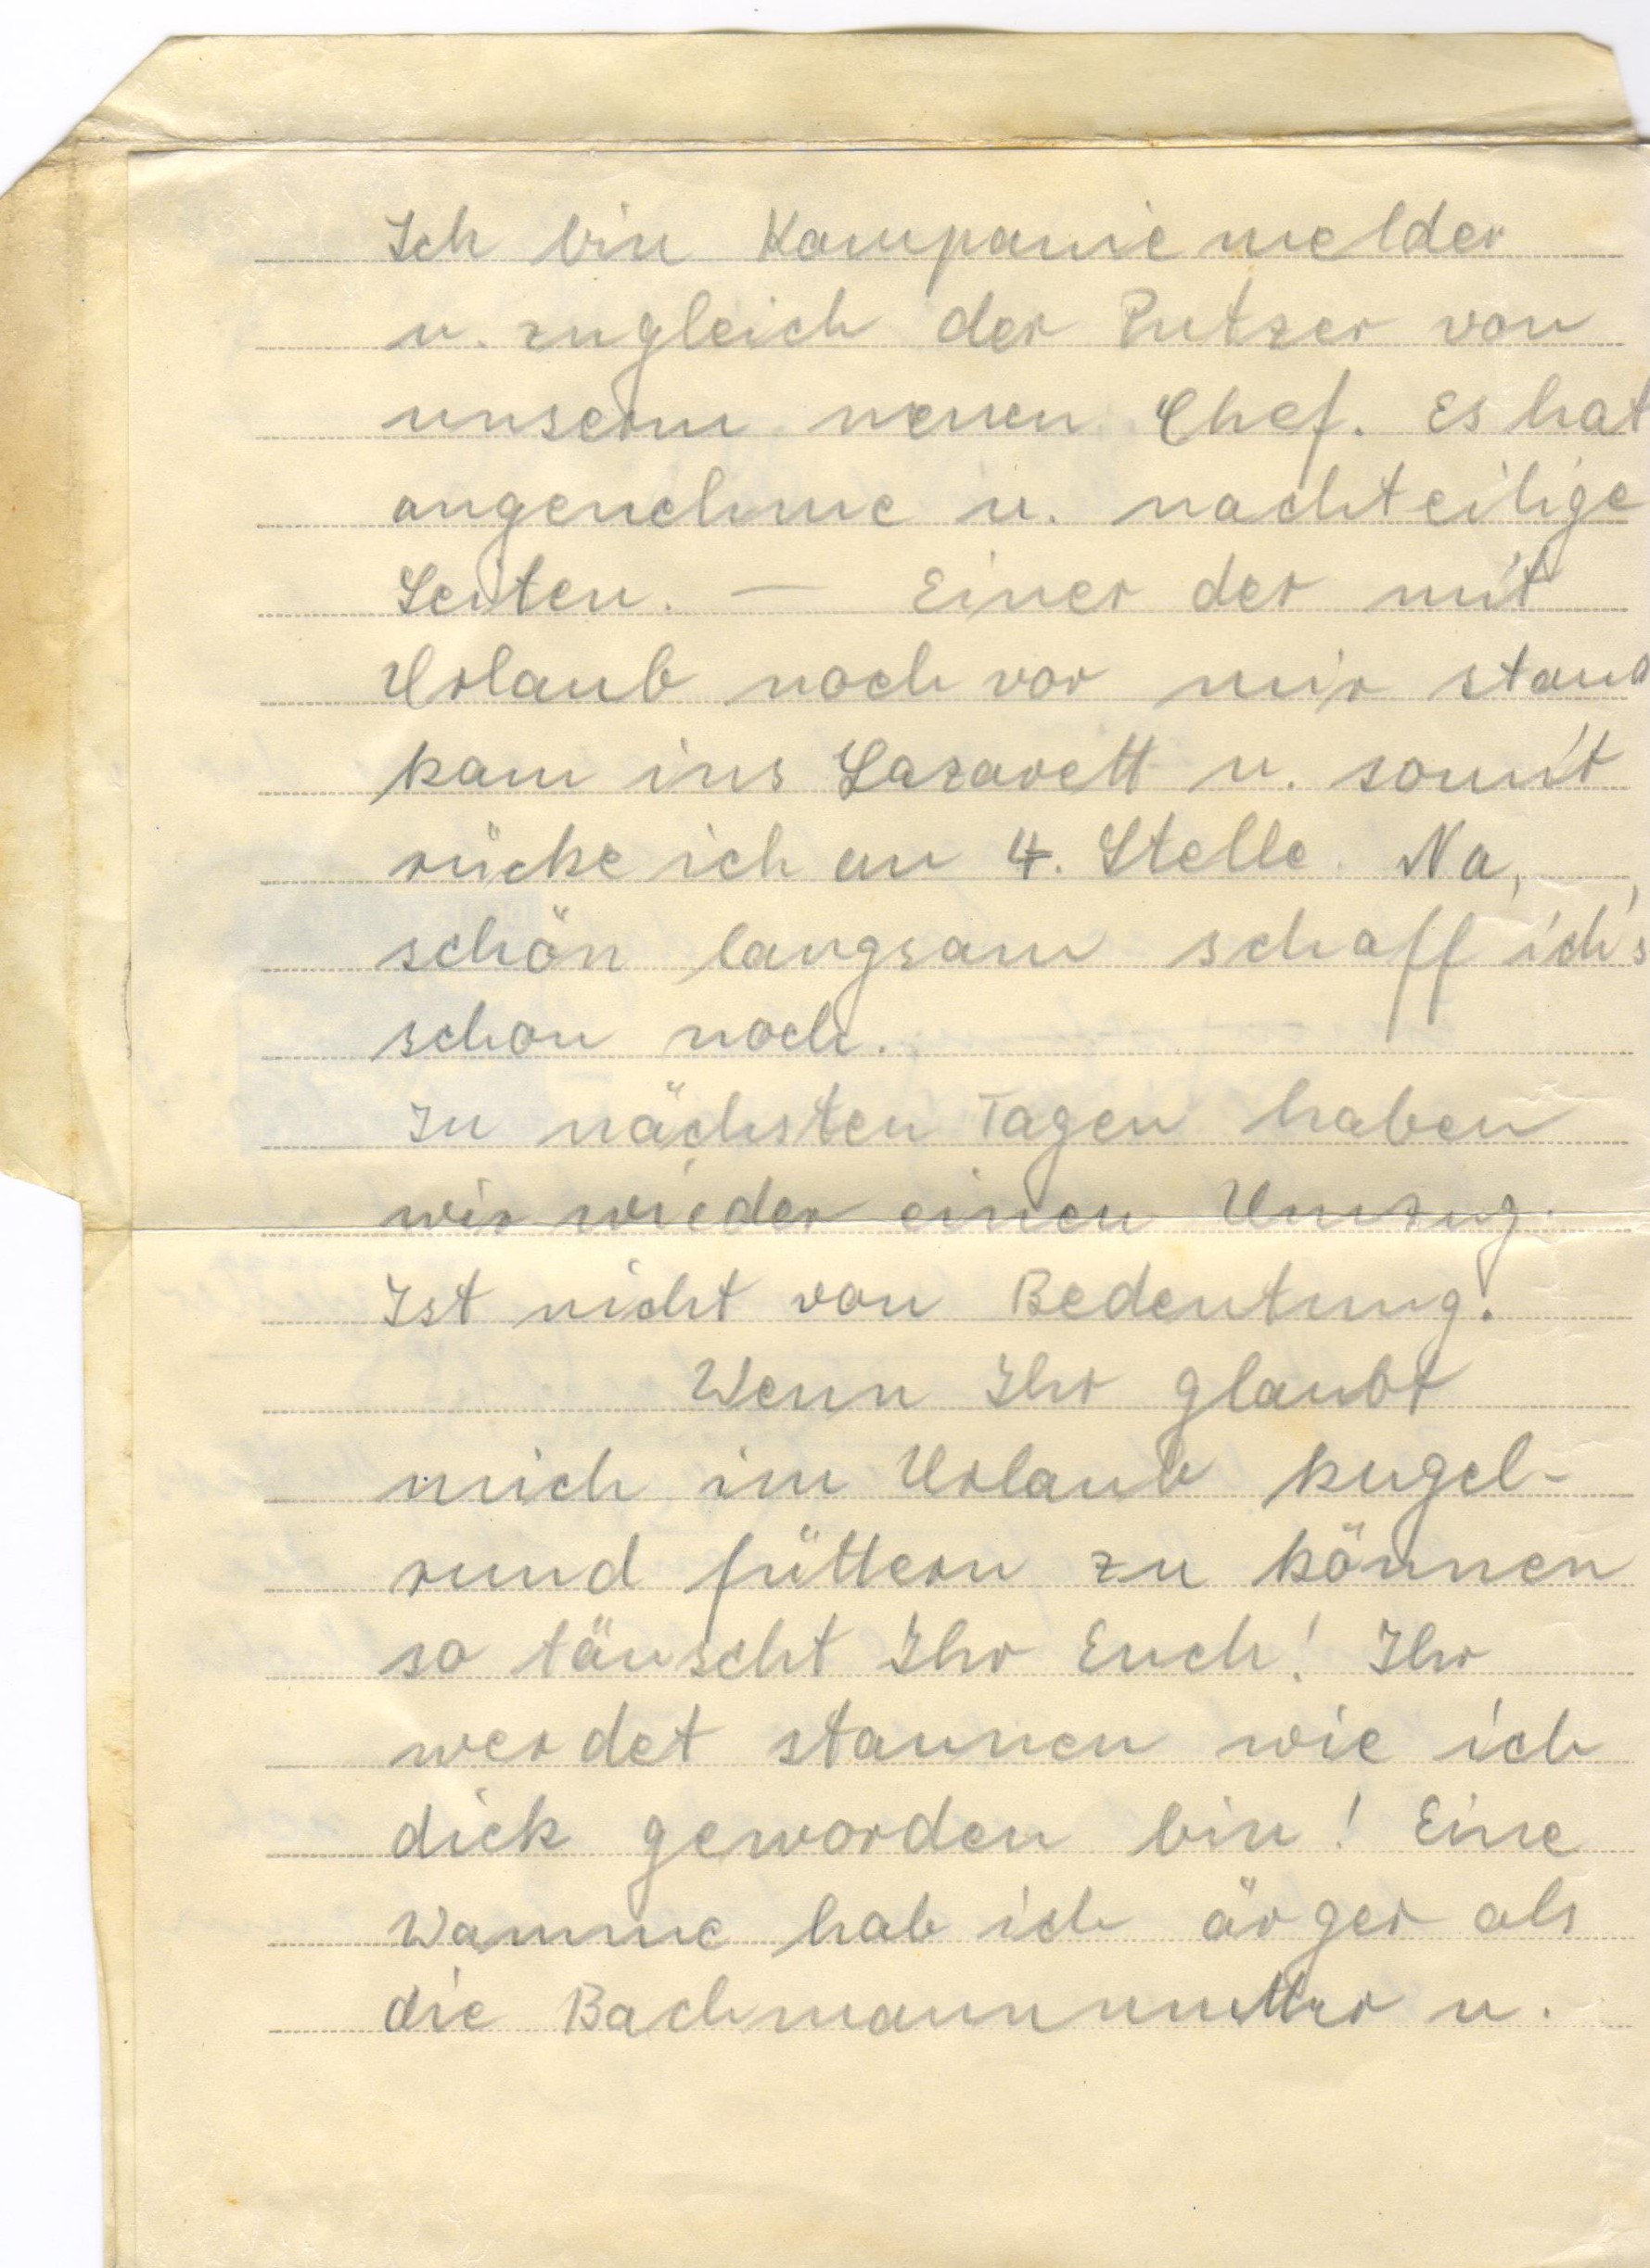 Ich bin Kompaniemelder
u. zugleich der Putzer von
unserm neuen Chef. Es hat
angenehme u. nachteilige
Seiten. — Einer der mit
Urlaub noch vor mir stand
kam ins Lazarett u. somit
rücke ich an 4. Stelle. Na,
schön langsam schaff ich's
schon noch.
In nächsten Tagen haben
wir wieder einen Umzug.
Ist nicht von Bedeutung.
Wenn Ihr glaubt
mich im Urlaub kugel-
rund füttern zu können
so täuscht Ihr Euch! Ihr
werdet staunen wie ich
dick geworden bin! Eine
Wamme hab ich ärger als
die Bachmannmutter u.